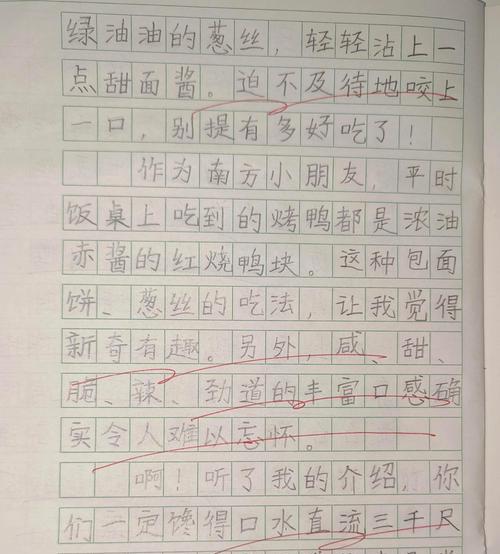 绿油油的葱丝，轻轻沾上一
点甜面酱。迫不及待地咬上
一口，别提有多好吃了！
作为南方小朋友，平时
饭桌上吃到的烤鸭都是浓油
赤酱的红烧鸭块。这种包面
饼、葱丝的吃法，让我觉得
新奇有趣。另外，咸、甜、
脆、辣、劲道的丰富口感确
实令人难以忘怀。
啊！听了我的介绍，你
们一定馋得口水直流三千尺